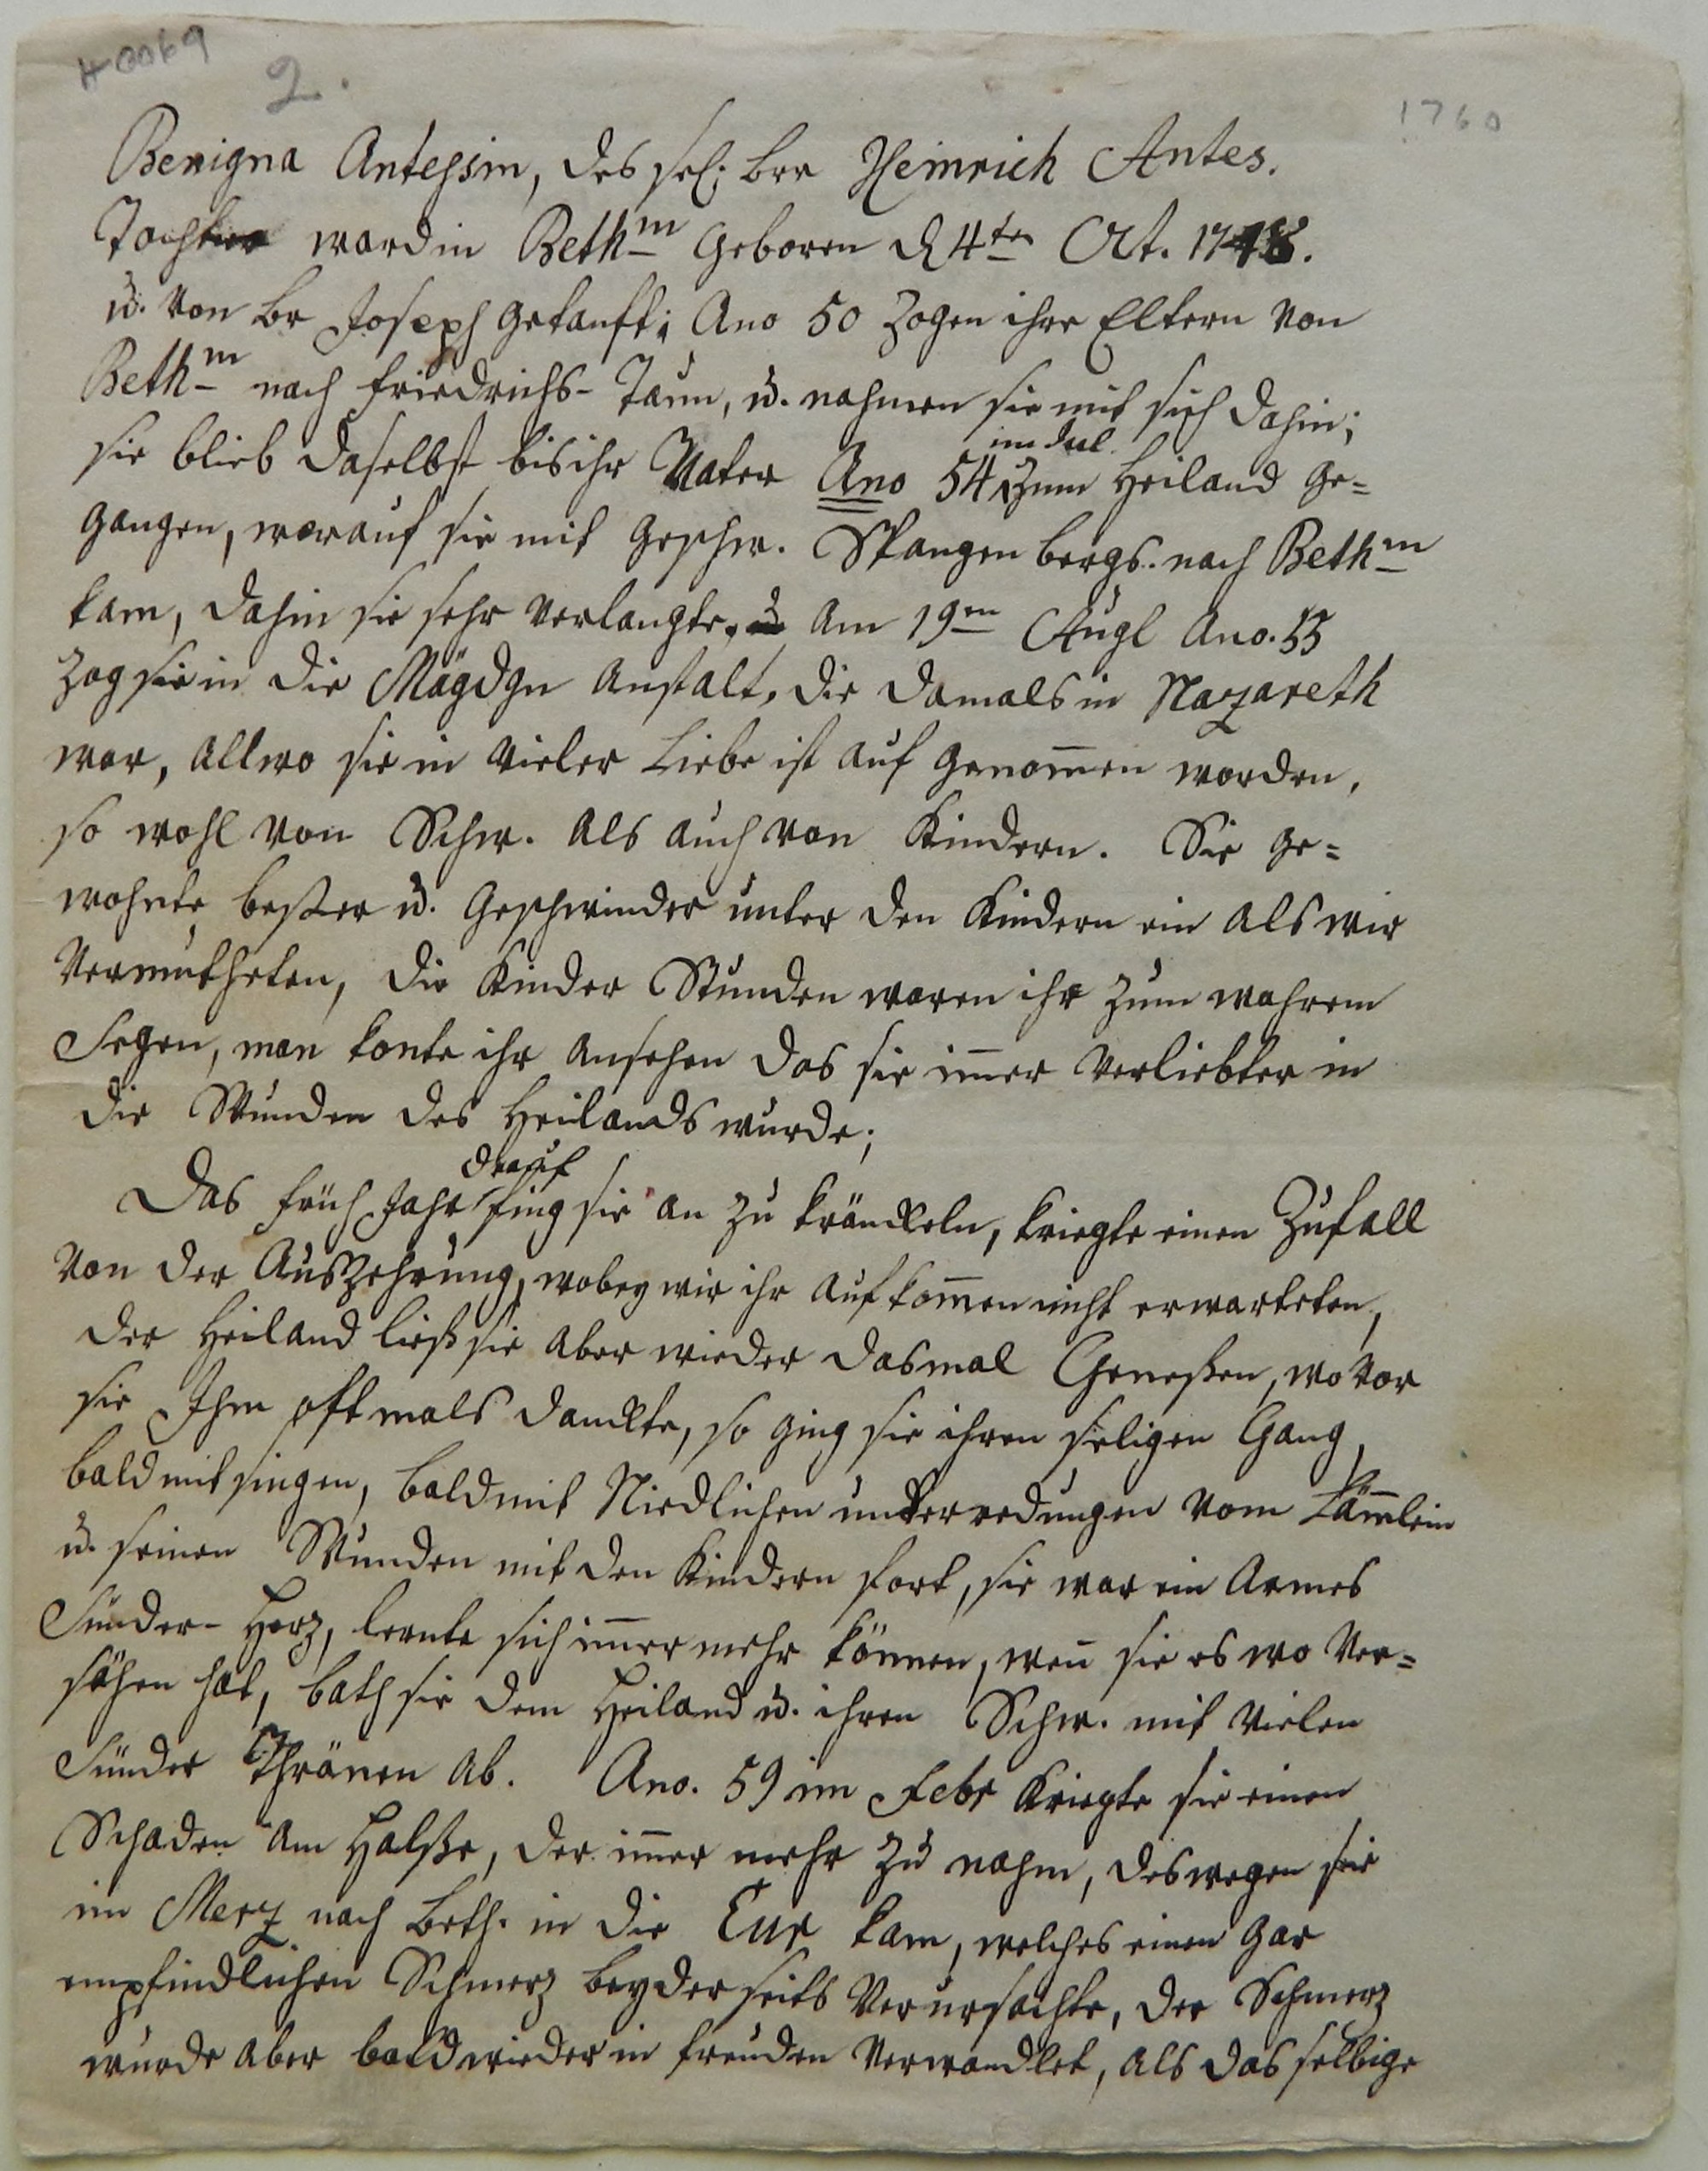 H0069
2.
1760
Benigna Antessin, des sel; brr Heinrich Antes.
Tochter ward in Bethm Geboren d 4ten Oct. 1748.
u. von br Joseph getauft; Ano 50 Zogen ihre Eltern von
Bethm nach Friedrichs-Taun, u. nahmen sie mit sich dahin;
sie blieb daselbst bis ihr Vater Ano 54 im Jul. Zum Heiland ge=
gangen, worauf sie mit Geschw. Spangenbergs. nach Bethm
kam, dahin sie sehr verlangte, Am 19en Augl Ano. 55
Zog sie in die Mägdgn Anstalt, die damals in Nazareth
war, allwo sie in vieler Liebe ist auf genom̄en worden,
so wohl von Schw. als auch von Kindern. Sie ge=
wohnte beßer u. Geschwinder unter den Kindern ein als wir
vermutheten, die Kinder Stunden waren ihr zum wahrem
Segen, man konte ihr ansehen das sie im̄er verliebter in
die Wunden des Heilands wurde;
Das früh Jahr drauf fing sie an zu kränckeln, kriegte einen Zufall
von der Auszehrung, wobey wir ihr aufkom̄en nicht erwarteten,
der Heiland ließ sie aber wieder dasmal Geneßen, wovor
sie Ihm oftmals danckte, so ging sie ihren seligen Gang,
bald mit singen, bald mit Niedlichen unterredungen vom Läm̄lein
u. seinen Wunden mit den Kindern fort, sie war ein Armes
Sünder-Herz, lernte sich im̄er mehr können, wen̄ sie es wo ver=
sähen hat, bath sie dem Heiland u. ihren Schw. mit vielen
Sünder Thränen ab. Ano. 59 im Febr kriegte sie einen
Schaden am Halße, der im̄er mehr zu nahm, deswegen sie
im Merz nach Beth. in die Cur kam, welches einen gar
empfindlichen Schmerz beyderseits verursachte, der Schmerz
wurde aber bald wieder in freuden verwandlet, als das selbige